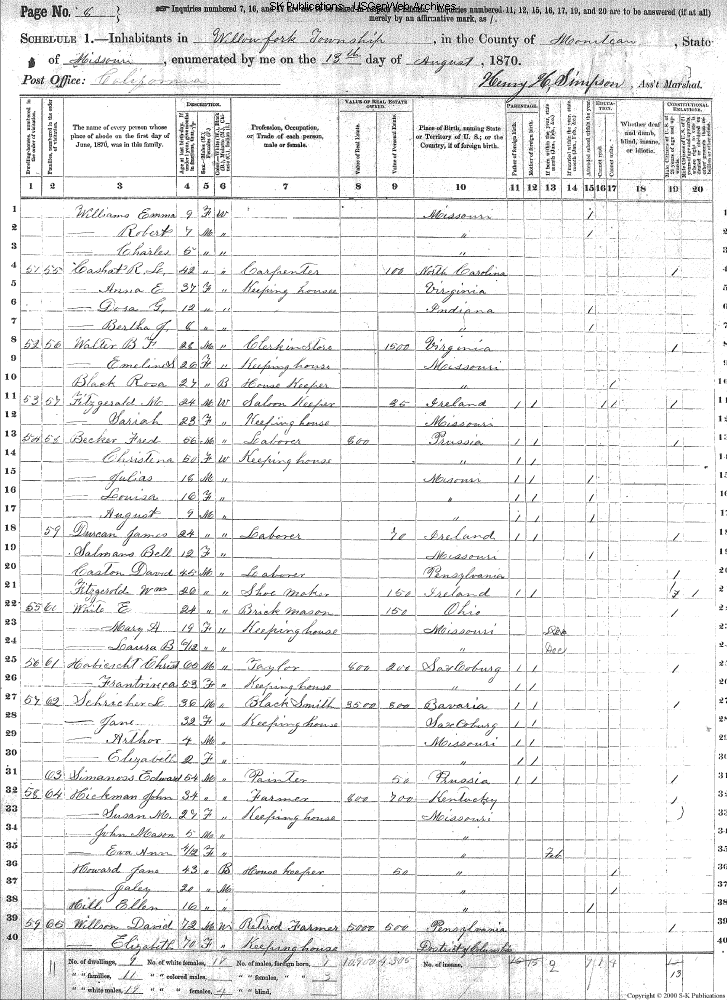 Page No. 6
SK Publications / USGenWeb Archives
Inquiries numbered 7, 16, and 17 are not to be asked in respect to infants. Inquiries numbered 11, 12, 15, 16, 17, 19, and 20 are to be answered (if at all)
merely by an affirmative mark, as /.
SCHEDULE 1.—Inhabitants in Willow fork Township, in the County of Moniteau, State
of Missouri, enumerated by me on the 13th day of August, 1870.
Post Office: California
Henry H. Simpson, Ass't Marshal.
Dwelling-houses, numbered in the order of visitation.
Families, numbered in the order of visitation.
The name of every person whose place of abode on the first day of June, 1870, was in this family.
DESCRIPTION.
Profession, Occupation, or Trade of each person, male or female.
VALUE OF REAL ESTATE OWNED.
Value of Real Estate.
Value of Personal Estate.
Place of Birth, naming State or Territory of U. S.; or the Country, if of foreign birth.
PARENTAGE.
Father of foreign birth.
Mother of foreign birth.
EDUCATION.
Attended school within the year.
Cannot read.
Cannot write.
Whether deaf and dumb, blind, insane, or idiotic.
CONSTITUTIONAL RELATIONS.
1 2 3 4 5 6 7 8 9 10 11 12 13 14 15 16 17 18 19 20
1 Williams Emma 9 F W Missouri /
2 — Robert 7 M " " /
3 — Charles 5 " " "
4 51 55 Cashat R. L. 42 " " Carpenter 100 North Carolina /
5 — Anna E. 37 F " Keeping house Virginia
6 — Dosa G. 12 " " Indiana /
7 — Bertha J. 8 " " " /
8 52 56 Walter B F 28 M " Clerk in store 1500 Virginia /
9 — Emeline 26 F " Keeping house Missouri
10 Black Rosa 27 " B House Keeper " /
11 53 57 Fitzgerald M 24 M W Saloon Keeper 25 Ireland / / / / /
12 — Sariah 23 F " Keeping house Missouri
13 54 58 Becker Fred 56 M " Laborer 800 Prussia / / /
14 — Christena 50 F W Keeping house " / /
15 — Julias 18 M " Misouri / / /
16 — Louisa 16 F " " / / /
17 — August 9 M " " / / /
18 59 Duncan James 24 " " Laborer 70 Ireland / / /
19 Salmans Bell 12 F " Missouri /
20 Caston David 45 M " Laborer Pensylvania /
21 Fitzgerolds Wm 26 " " Shoe maker 150 Ireland / / / /
22 55 61 White E 24 " " Brick mason 150 Ohio /
23 — Mary A 19 F " Keeping house Missouri
24 — Laura B 8/12 " " " Dec
25 56 61 Christ 60 M " Taylor 800 200 Sax Coburg / / /
26 — 53 F " Keeping house " / /
27 57 62 L. 36 M " Black Smith 3500 800 Bavaria / / /
28 — Jane 32 F " Keeping house Sax Coburg / /
29 — Arthor 4 M " Missouri / /
30 — Elizabeth 2 F " " / /
31 63 Simanoss Edward 54 M " Painter 50 Prussia / / /
32 58 64 Hickman John 34 " " Farmer 800 700 Kentucky /
33 — Susan M. 27 F " Keeping house Missouri
34 — John Mason 5 M " "
35 — Eva Ann 4/12 F " " Feb
36 Howard Jane 43 " B House keeper 50 " /
37 — Jaley 20 " M " /
38 Hill Ellen 16 " " " /
39 59 65 Willson David 72 M W Retired Farmer 5000 500 Pensylvania /
40 — Elizabeth 70 F " Keeping house District of Columbia
No. of dwellings, 9 No. of white females, 18 No. of males, foreign born, 7 10,900 4,305 No. of insane,
" " families, 11 " " colored males, " " females, " " 3
" " white males, 19 " " " females, 4 " " blind, 13
Copyright © 2000 S-K Publications